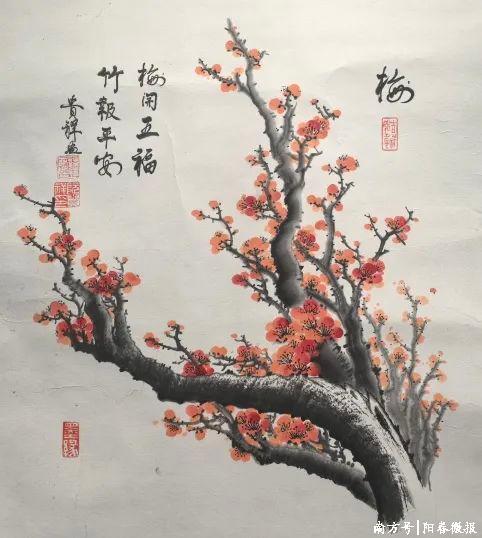 梅
梅開五福
竹報平安
貴祥画
南方号|阳春微报